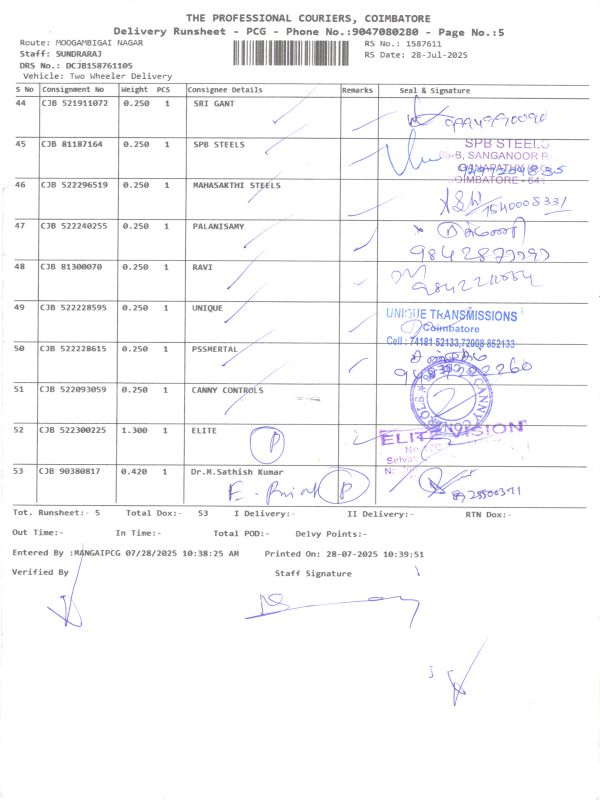 THE PROFESSIONAL COURIERS, COIMBATORE
Delivery Runsheet - PCG - Phone No.:9047080280 - Page No.:5
Route: MOOGAMBIGAI NAGAR RS No.: 1587611
Staff: SUNDRARAJ RS Date: 28-Jul-2025
DRS No.: DCJB158761105
Vehicle: Two Wheeler Delivery
S No Consignment No Weight PCS Consignee Details Remarks Seal & Signature
44 CJB 521911072 0.250 1 SRI GANT
45 CJB 81187164 0.250 1 SPB STEELS SPB STEELS
-B, SANGANOOR R
GANAPATHY
COIMBATORE - 641
46 CJB 522296519 0.250 1 MAHASAKTHI STEELS
47 CJB 522240255 0.250 1 PALANISAMY
48 CJB 81300070 0.250 1 RAVI
49 CJB 522228595 0.250 1 UNIQUE UNIQUE TRANSMISSIONS
Coimbatore
Cell : 74181 52133,72008 852133
50 CJB 522228615 0.250 1 PSSMERTAL
51 CJB 522093059 0.250 1 CANNY CONTROLS CANNY
52 CJB 522300225 1.300 1 ELITE P ELITE VISION
53 CJB 90380817 0.420 1 Dr.M.Sathish Kumar
P
Tot. Runsheet:- 5 Total Dox:- 53 I Delivery:- II Delivery:- RTN Dox:-
Out Time:- In Time:- Total POD:- Delvy Points:-
Entered By :MANGAIPCG 07/28/2025 10:38:25 AM Printed On: 28-07-2025 10:39:51
Verified By Staff Signature